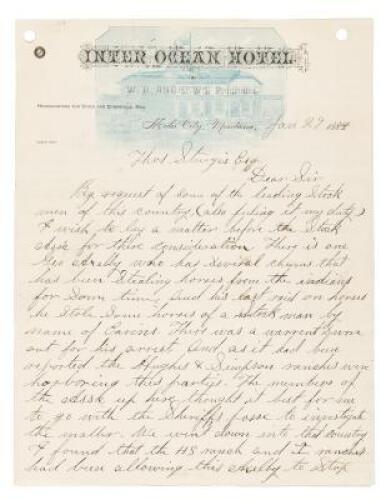 INTER OCEAN HOTEL
W. D. ANDREWS Proprietor
HEADQUARTERS FOR STOCK AND
Miles City, Montana, Jan 29 1884
Thos Sturgis Esq.
Dear Sir
By request of some of the leading Stock
men of this country, (also feeling it my duty)
I wish to lay a matter before the Stock
Assk for thire consideration There is one
Geo Shelby who has several chums that
has been Stealing horses from the indians
for Some time, And his last raid on horses
he Stole Some horses of a stock man by
name of Cavins. There was a warrent sworn
out for his arrest And, as it had been
reported the Hughes & Simpson ranches were
harboring this parties. The members of
the Assk up here thought it best for me
to go with the Sheriffs posse to investigate
the matter. We went down into that country
I found that the HS ranch and ranches
had been allowing this Shelby to Stop